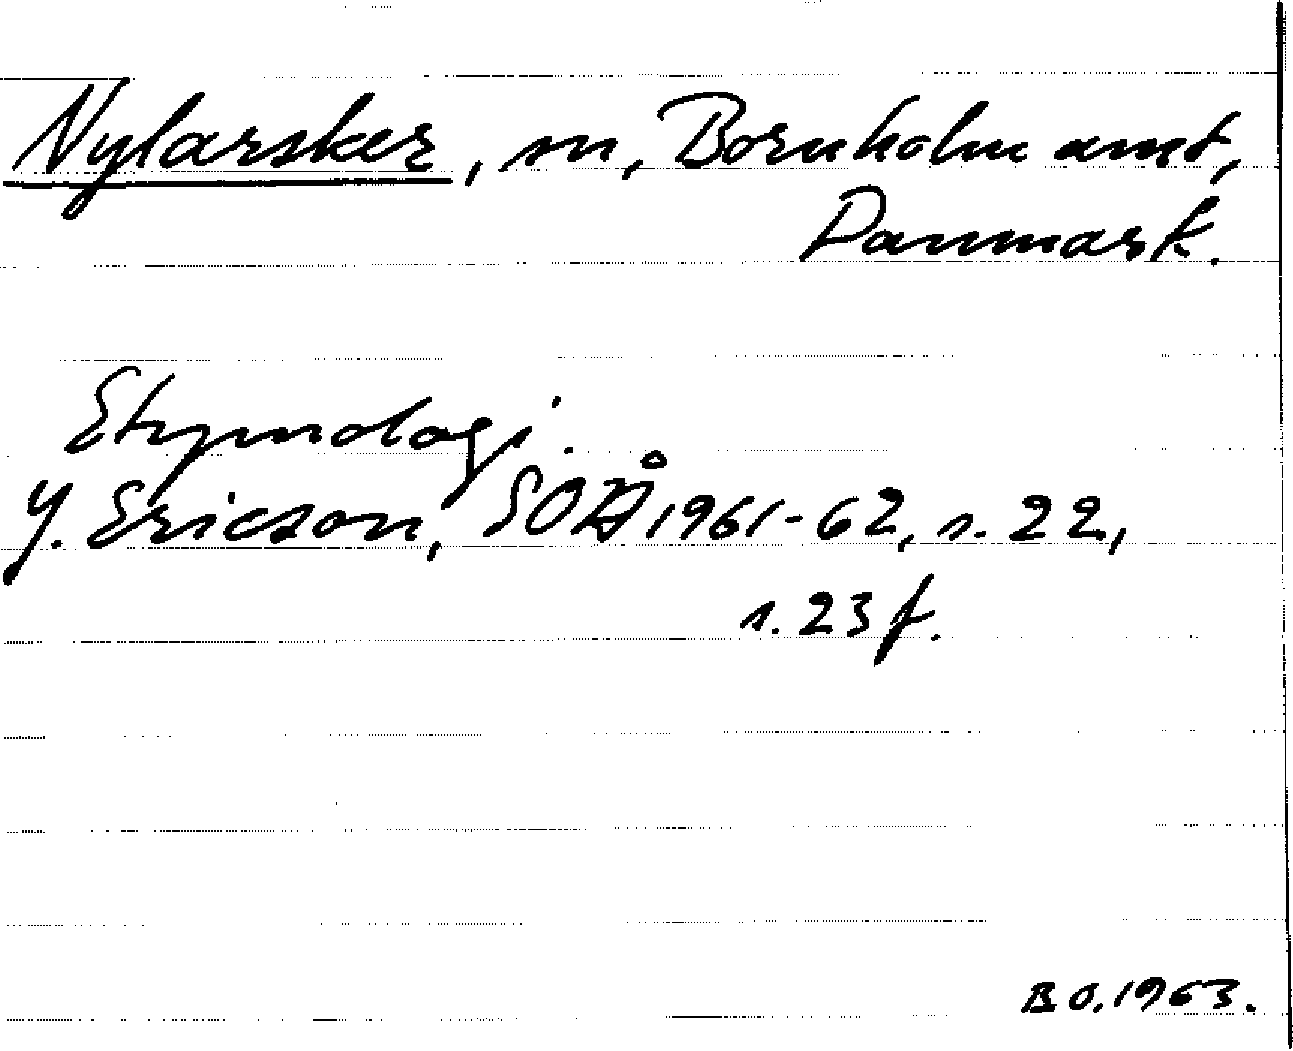 Nylarsker, sn, Bornholm amt,
Danmark.
Etymologi.
Y. Ericson, SOÅ 1961-62, s. 22,
s. 23 f.
B O. 1963.